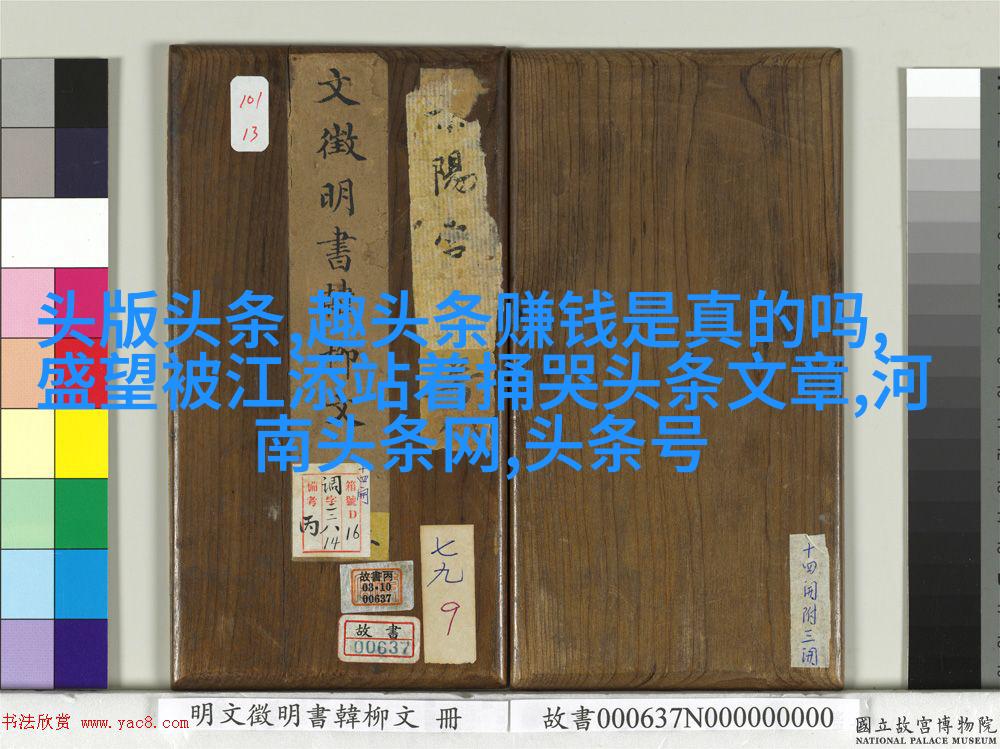 101
13
文徵明書韓柳文
陽宮
头版头条,趣头条赚钱是真的吗,
盛望被江添站着捅哭头条文章,河
南头条网,头条号
十四開
箱號D16
調字三八14
備考丙
故書丙
03·10
00637
故書
00637
七九
9
十四開附三開
明文徵明書韓柳文 冊
故書000637N000000000
書法欣赏 www.yac8.com
國立故宮博物院
NATIONAL PALACE MUSEUM